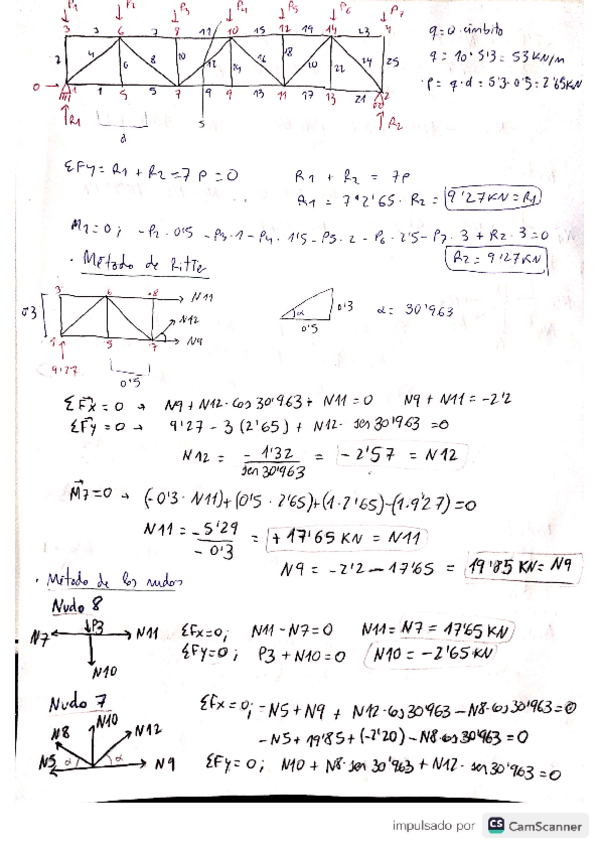 P1 P2 P3 P4 P5 P6 P7
3 3 6 7 8 11 10 15 12 19 14 23 4
2 4 6 8 10 12 14 16 18 20 22 24 25
0 1 1 5 5 7 9 9 13 11 17 13 21 2
R1 d S R2
q=0 ámbito
q = 10·5'3 = 53 KN/m
P = q·d = 5'3·0'5 = 2'65KN
ΣFy = R1 + R2 = 7P = 0 R1 + R2 = 7P
R1 = 7·2'65 · R2 = 9'27KN = R1
M1=0; -P2·0'5 -P3·1 -P4·1'5 -P5·2 -P6·2'5 -P7·3 + R2·3 = 0
R2 = 9'27KN
· Método de Ritter
3 6 8 → N11
0'3 N12 0'3 α = 30'963
1 5 7 → N9 α 0'5
9'27
0'5
ΣFx = 0 → N9 + N12·cos 30'963 + N11 = 0 N9 + N11 = -2'2
ΣFy = 0 → 9'27 - 3 (2'65) + N12· sen 30'963 = 0
N12 = - 1'32 / sen 30'963 = -2'57 = N12
M7=0 → (-0'3·N11)+(0'5·2'65)+(1·2'65)-(1·9'27)=0
N11 = -5'29 / -0'3 = +17'65 KN = N11
N9 = -2'2 - 17'65 = 19'85 KN = N9
· Método de los nudos
Nudo 8
N7 P3 N11 ΣFx=0; N11 - N7 = 0 N11 = N7 = 17'65 KN
N10 ΣFy=0; P3 + N10 = 0 N10 = -2'65 KN
Nudo 7 ΣFx = 0; -N5 + N9 + N12·cos 30'963 - N8·cos 30'963 = 0
N8 N10 N12 -N5 + 19'85 + (-2'20) - N8·cos 30'963 = 0
N5 α α N9 ΣFy = 0; N10 + N8·sen 30'963 + N12· sen 30'963 = 0
impulsado por CS CamScanner